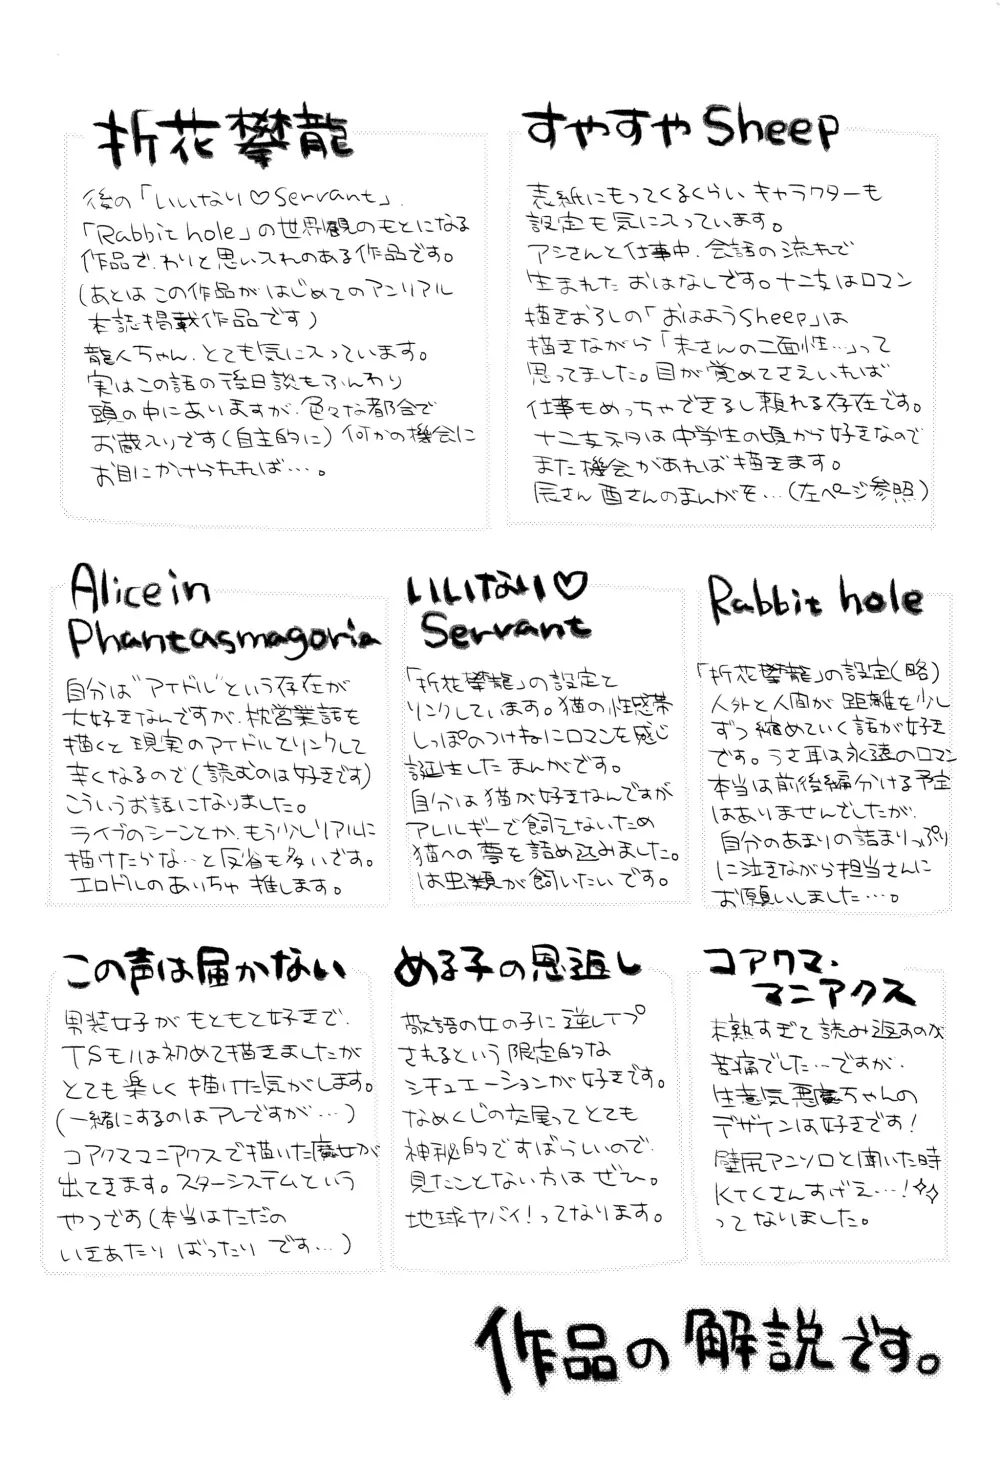 折花攀龍
後の「いいなり♡Servant」、
「Rabbit hole」の世界観のもとになる
作品で、わりと思い入れのある作品です。
(あとは この作品が はじめてのアンリアル
本誌掲載作品です)
龍人ちゃん、とても気に入っています。
実はこの話の後日談もふんわり
頭の中にありますが、色々な都合で
お蔵入りです(自主的に)何かの機会に
お目にかけられれば…。
すやすやSheep
表紙にもってくるくらい キャラクターも
設定も気に入っています。
アシさんと仕事中、会話の流れで
生まれた おはなしです。十二支はロマン
描きおろしの「おはようSheep」は
描きながら「未さんの二面性…」って
思ってました。目が覚めてさえいれば
仕事もめっちゃできるし頼れる存在です。
十二支ネタは中学生の頃から好きなので
また機会があれば描きます。
辰さん 酉さんのまんがを…(左ページ参照)
Alice in
Phantasmagoria
自分は"アイドル"という存在が
大好きなんですが、枕営業話を
描くと現実のアイドルとリンクして
辛くなるので(読むのは好きです)
こういうお話になりました。
ライブのシーンとか、もう少しリアルに
描けたらな…と反省も多いです。
エロドルのあいちゃ 推します。
いいなり♡
Servant
「折花攀龍」の設定と
リンクしています。猫の性感帯
しっぽのつけねにロマンを感じ
誕生したまんがです。
自分は猫が好きなんですが
アレルギーで飼えないため
猫への夢を詰め込みました。
は虫類が飼いたいです。
Rabbit hole
「折花攀龍」の設定(略)
人外と人間が 距離を少し
ずつ縮めていく話が好き
です。うさ耳は永遠のロマン
本当は前後編分ける予定
はありませんでしたが、
自分のあまりの詰まりっぷり
に泣きながら担当さんに
お願いしました…。
この声は届かない
男装女子が もともと好きで、
TSモノは初めて描きましたが
とても楽しく描けた気がします。
(一緒にするのはアレですが…)
コアクママニアクスで描いた魔女が
出てきます。スターシステムという
やつです(本当はただの
いきあたり ばったり です…)
める子の恩返し
敬語の女の子に逆レイプ
されるという限定的な
シチュエーションが好きです。
なめくじの交尾ってとても
神秘的ですばらしいので、
見たことない方はぜひ。
地球ヤバイ!ってなります。
コアクマ・
マニアクス
未熟すぎて読み返すのが
苦痛でした…ですが、
生意気悪魔ちゃんの
デザインは好きです!
壁尻アンソロと聞いた時
KTCさんすげえ…!
ってなりました。
作品の解説です。